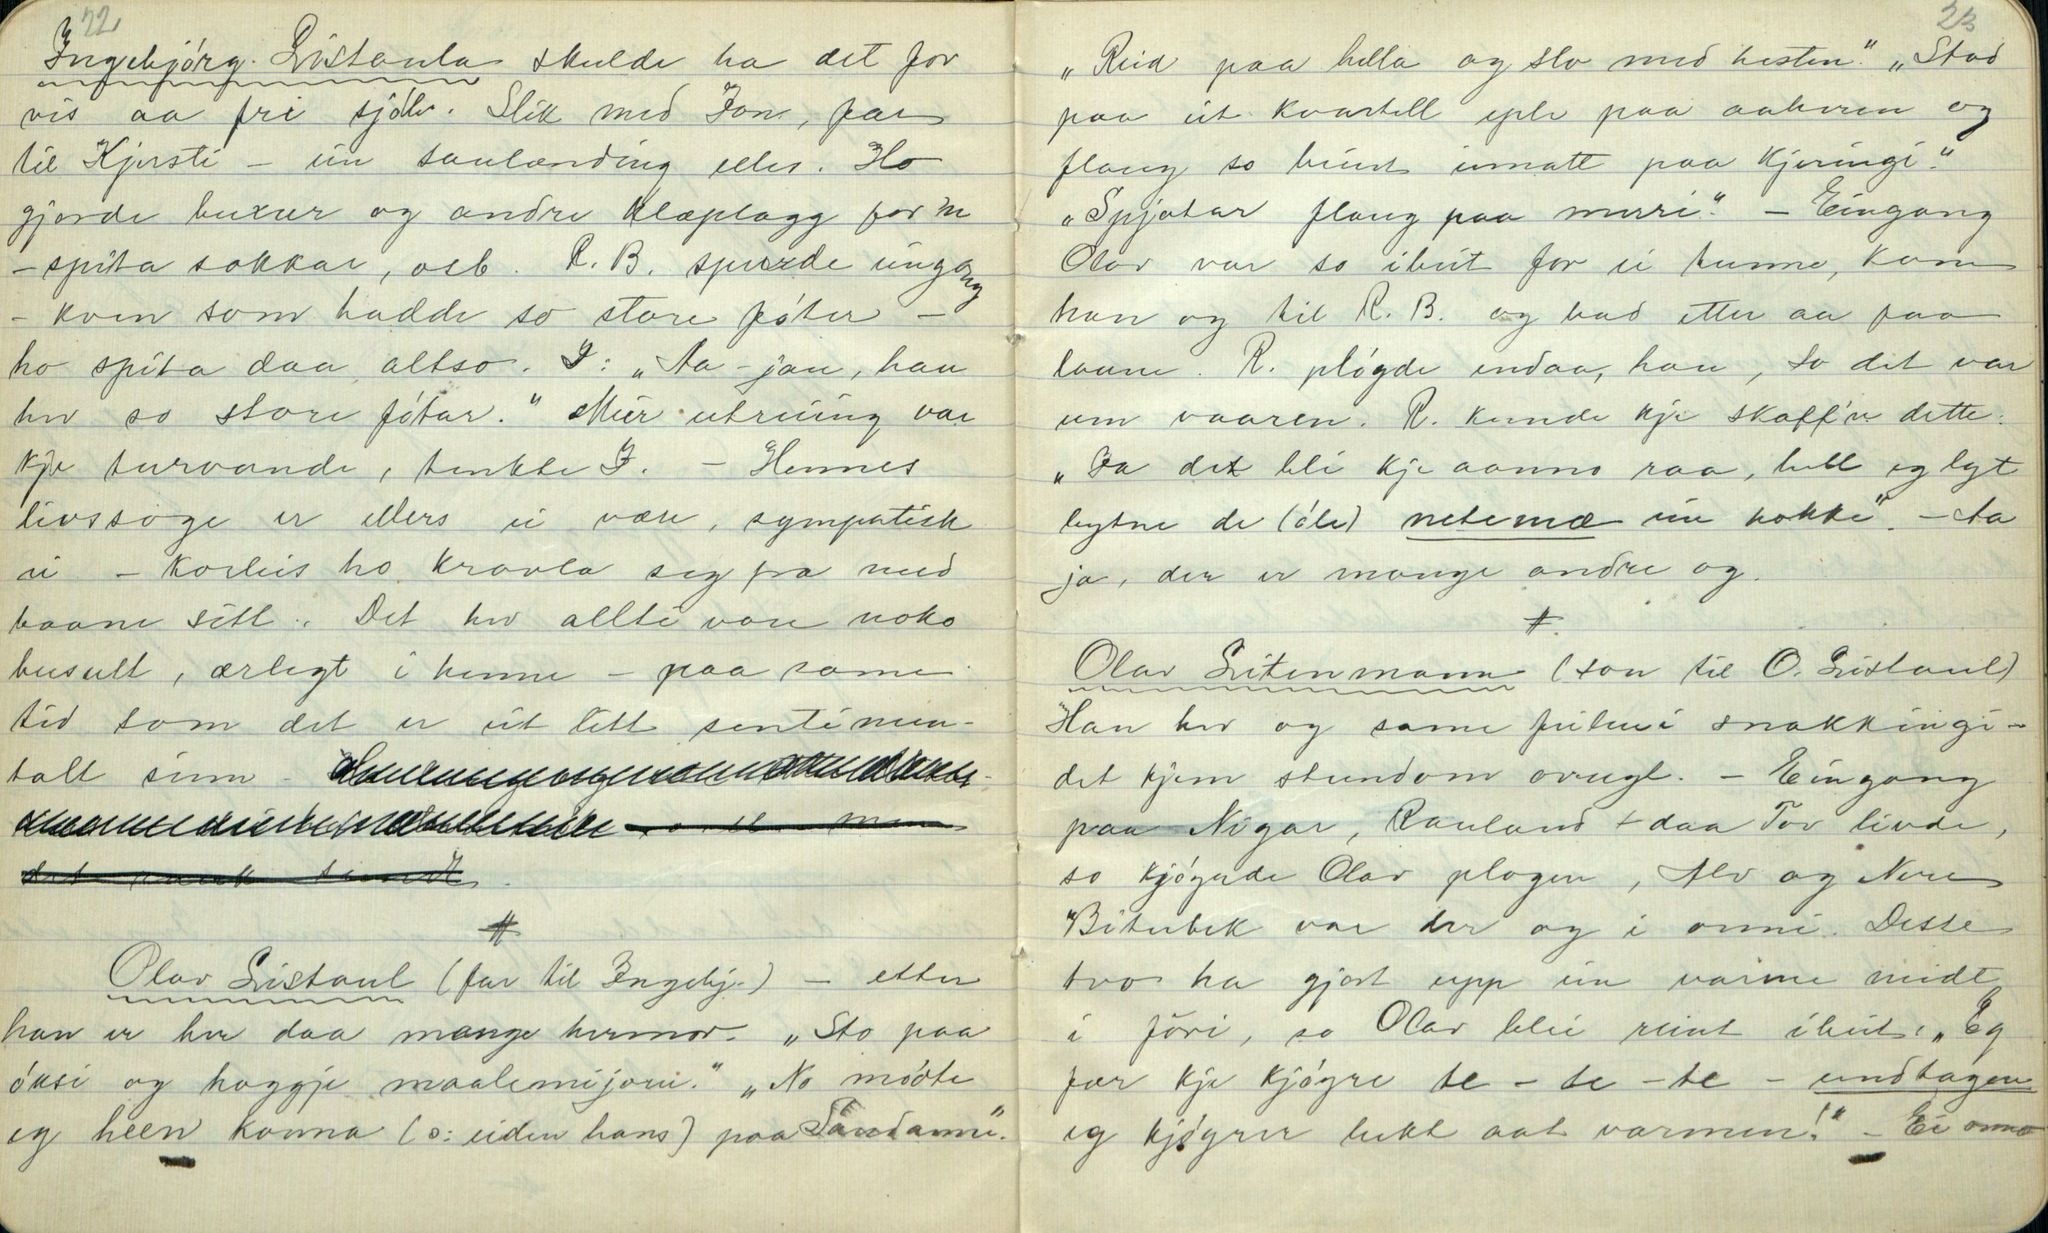 22
Ingebjórg Listaula skulde ha det for
vis aa fri sjölv. Slik med Jon, far
til Kjersti – ein saulending elles. Ho
gjorde buxur og andre klæplagg for 'n
– spita sokkar, osb. R. B. spurde eingong
– kven som hadde so store fóter –
ho spita daa altso. I: „Aa – jau, han
hev so store fótar." Meir utreiing var
kje turvande, tenkte I. – Hennes
livssoge er ellers ei vær, sympatisk
ei – korleis ho kravla seg fra med
baane sitt. Det hev allti vore noko
busult, ærlegt i henne – paa same
tid som det er eit litt sentimen-
talt sinn –
#
Olav Listaul (far til Ingebj.) – etter
han er her daa mange hermor. „Sto paa
óksi og hoggje maalemijorn." „No módte
eg heen konna (ɔ: eiden hans) paa Sandanne".
23
„Reid paa hella og slo med hesten". „Stod
paa eit kvartell eple paa aakeren og
flaug so beint imatt paa kjeringi."
„Spjotar flaug paa merri". – Eingong
Olav var so ibeit for ei tunne, kom
han og til R. B. og bad etter aa faa
laane. R. plógde endaa, han, so det var
um vaaren. R. kunde kje skaff'n dette.
„Ja det bli kje aanno raa, hell eg lyt
bytne de (óle) netemæ ein kokke". – Aa
ja, der er mange andre og.
#
Olav Litenmann (son til O. Listaul)
Han hev og same feilen i snakkingi –
det kjem stundom ovugt. – Eingong
paa Nigar, Rauland + daa Tov livde,
so kjógude Olav plogen, Alv og Nere
Bitubek var der og i onni. Desse
tvo ha gjort upp ein varme midt
i fōri, so Olav blei reint ibeit. „Eg
fær kje kjógre te – te – te – undtagen
eg kjógrer bekt aat varmen!" – Ei onno